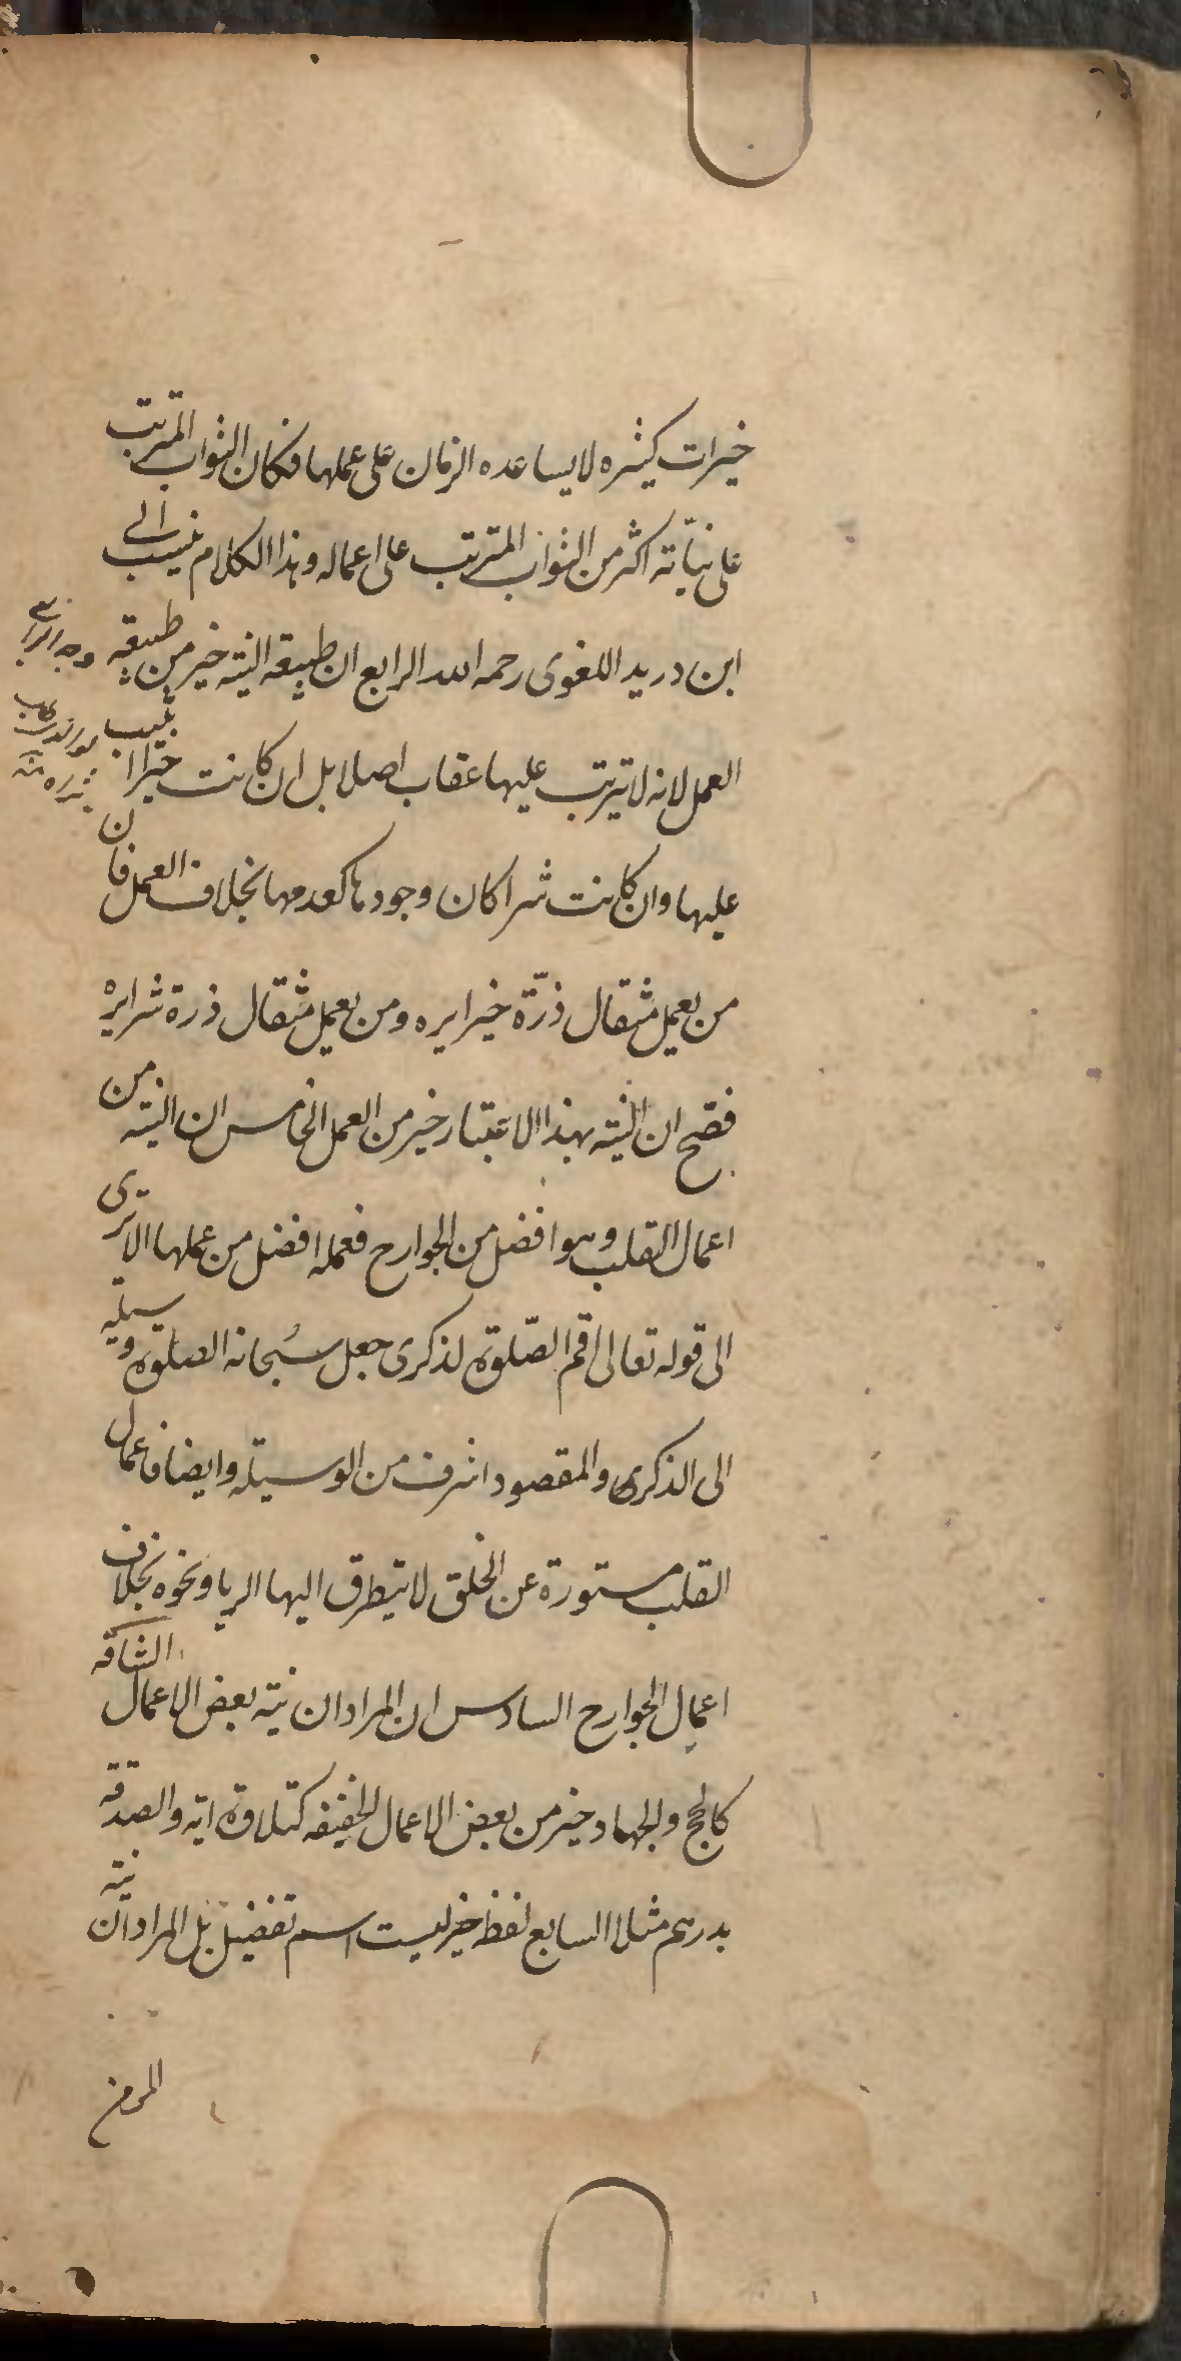 خيرات كثيره لا يساعده الزمان على عملها فكان الثواب المترتب
على نياته اكثر من الثواب المترتب على اعماله وهذا الكلام ينسب الى
ابن دريد اللغوى رحمه الله الرابع ان طبيعة النيه خير من طبيعة
العمل لانه لا يترتب عليها عقاب اصلا بل ان كانت خيرا اثيب
عليها وان كانت شرا كان وجودها كعدمها بخلاف العمل فان
من يعمل مثقال ذرّة خيرا يره ومن يعمل مثقال ذرة شرا يره
فصح ان النيه بهذا الاعتبار خير من العمل الخامس ان النيه من
اعمال القلب وهو افضل من الجوارح فعمله افضل من عملها الا ترى
الى قوله تعالى اقم الصّلوة لذكرى جعل سبحانه الصلوة وسيلة
الى الذكرى والمقصود اشرف من الوسيلة وايضا فاعمال
القلب مستورة عن الخلق لا يتطرق اليها الريا ونحوه بخلاف
اعمال الجوارح السادس ان المراد ان نية بعض الاعمال الشاقه
كالحج والجهاد خير من بعض الاعمال الخفيفه كتلاوة اية والصدقه
بدرهم مثلا السابع لفظ خير ليست اسم تفضيل بل المراد ان نية
المومن
وجه الرابع